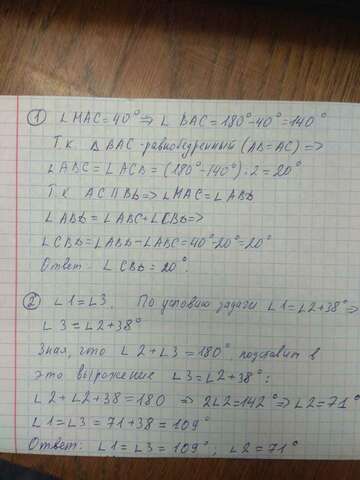 ① ∠MAC=40°⇒∠BAC=180°-40°=140°
Т.к. △BAC-равнобедренный (AB=AC)⇒
∠ABC=∠ACB=(180°-140°):2=20°
Т.к. AC∥BD⇒∠MAC=∠ABD
∠ABD=∠ABC+∠CBD⇒
∠CBD=∠ABD-∠ABC=40°-20°=20°
Ответ: ∠CBD=20°.
② ∠1=∠3. По условию задачи ∠1=∠2+38°⇒
∠3=∠2+38°
Зная, что ∠2+∠3=180°, подставим в
это выражение ∠3=∠2+38°:
∠2+∠2+38=180 ⇒ 2∠2=142°⇒∠2=71°
∠1=∠3=71+38=109°
Ответ: ∠1=∠3=109°, ∠2=71°